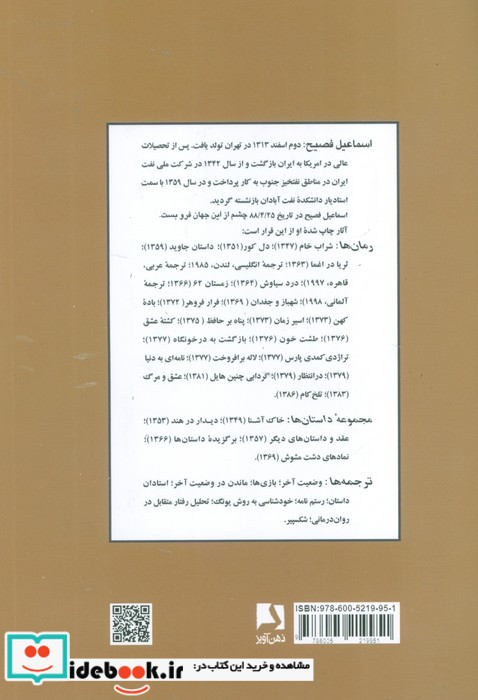 اسماعیل فصیح: دوم اسفند ۱۳۱۳ در تهران تولد یافت. پس از تحصیلات
عالی در امریکا به ایران بازگشت و از سال ۱۳۴۲ در شرکت ملی نفت
ایران در مناطق نفتخیز جنوب به کار پرداخت و در سال ۱۳۵۹ با سمت
استادیار دانشکدهٔ نفت آبادان بازنشسته گردید.
اسماعیل فصیح در تاریخ ۸۸/۴/۲۵ چشم از این جهان فرو بست.
آثار چاپ شدهٔ او از این قرار است:
رمان‌ها: شراب خام (۱۳۴۷)؛ دل کور (۱۳۵۱)؛ داستان جاوید (۱۳۵۹)؛
ثریا در اغما (۱۳۶۳؛ ترجمهٔ انگلیسی، لندن، ۱۹۸۵؛ ترجمهٔ عربی،
قاهره، ۱۹۹۷)؛ درد سیاوش (۱۳۶۴)؛ زمستان ۶۲ (۱۳۶۶؛ ترجمهٔ
آلمانی، ۱۹۹۸)؛ شهباز و جغدان (۱۳۶۹)؛ فرار فروهر (۱۳۷۲)؛ بادهٔ
کهن (۱۳۷۳)؛ اسیر زمان (۱۳۷۳)؛ پناه بر حافظ (۱۳۷۵)؛ کشتهٔ عشق
(۱۳۷۶)؛ طشت خون (۱۳۷۶)؛ بازگشت به درخونگاه (۱۳۷۷)؛
تراژدی‌کمدی پارس (۱۳۷۷)؛ لاله برافروخت (۱۳۷۷)؛ نامه‌ای به دنیا
(۱۳۷۹)؛ درانتظار (۱۳۷۹)؛ گردابی چنین هایل (۱۳۸۱)؛ عشق و مرگ
(۱۳۸۳)؛ تلخ‌کام (۱۳۸۶).
مجموعهٔ داستان‌ها: خاک آشنا (۱۳۴۹)؛ دیدار در هند (۱۳۵۳)؛
عقد و داستان‌های دیگر (۱۳۵۷)؛ برگزیدهٔ داستان‌ها (۱۳۶۶)؛
نمادهای دشت مشوش (۱۳۶۹).
ترجمه‌ها: وضعیت آخر؛ بازی‌ها؛ ماندن در وضعیت آخر؛ استادان
داستان؛ رستم نامه؛ خودشناسی به روش یونگ؛ تحلیل رفتار متقابل در
روان‌درمانی؛ شکسپیر.
ذهن‌آویز
ISBN: 978-600-5219-95-1
9 786005 219951
iiidebook.ir
مشاهده و خرید این کتاب در: